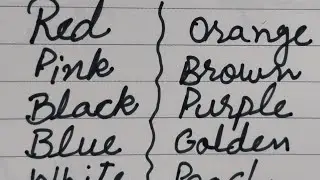 Red Orange
Pink Brown
Black Purple
Blue Golden
White